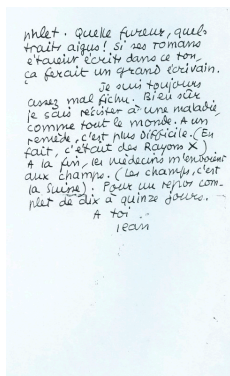 phlet. Quelle fureur, quels
traits aigus ! Si ses romans
étaient écrits dans ce ton,
ça ferait un grand écrivain.
Je suis toujours
assez mal fichu. Bien sûr
je sais résister à une maladie,
comme tout le monde. A un
remède, c'est plus difficile. (En
fait, c'était des Rayons X)
A la fin, les médecins m'envoient
aux champs. (Les champs, c'est
la Suisse). Pour un repos com-
plet de dix à quinze jours.
A toi
Jean